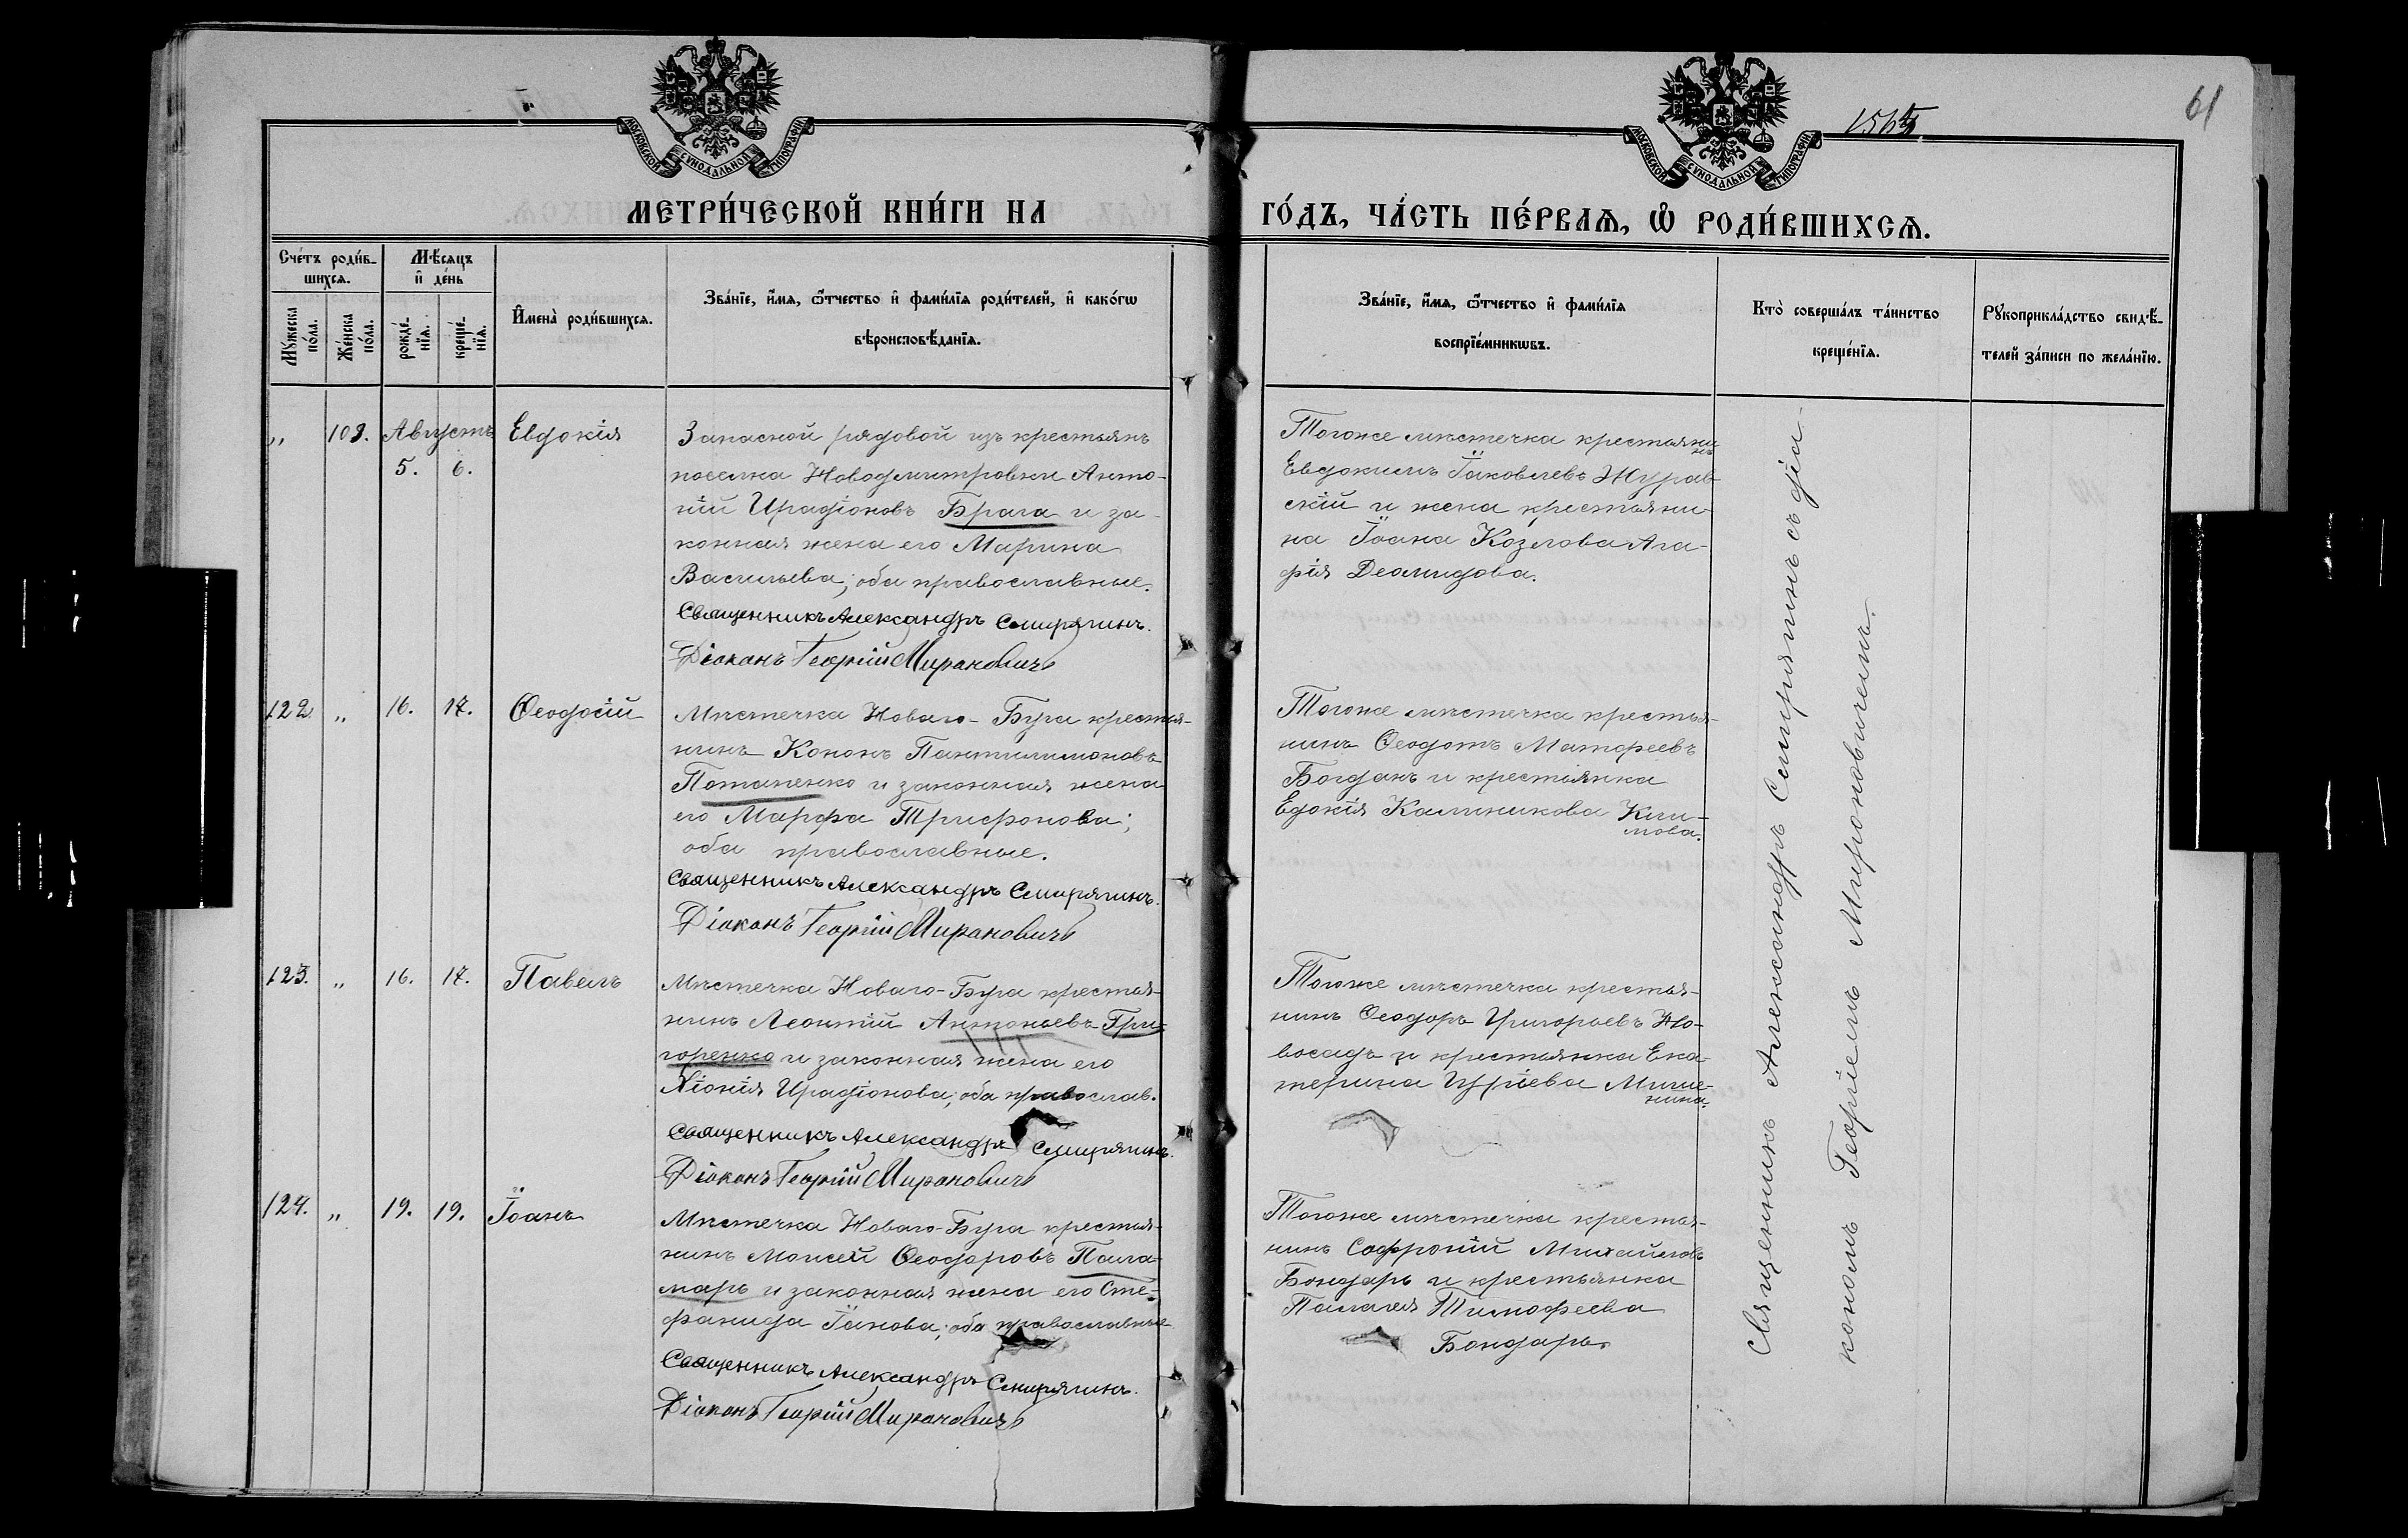 61
МОСКОВСКОЙ СУНОДАЛЬНОЙ ТИПОГРАФІИ
МОСКОВСКОЙ СУНОДАЛЬНОЙ ТИПОГРАФІИ
МЕТРИ́ЧЕСКОЙ КНИ́ГИ НА ГО́ДЪ, ЧА́СТЬ ПЕ́РВАѦ, Ѡ҆ РОДИ́ВШИХСѦ.
Сче́тъ роди́в-
шихсѧ.
Мѣ́сяцъ
и҆ де́нь
Мꙋ́жеска
по́ла.
Же́нска
по́ла.
рожде́-
нїѧ.
креще́-
нїѧ.
И҆мена̀ роди́вшихсѧ.
Зва́нїе, и҆́мѧ, ѻ҆́тчество и҆ фами́лїѧ роди́телей, и҆ како́гѡ
вѣроисповѣ́данїѧ.
Зва́нїе, и҆́мѧ, ѻ҆́тчество и҆ фами́лїѧ
воспрїе́мникѡвъ.
Кто̀ соверша́лъ та́инство
креще́нїѧ.
Рꙋкоприкла́дство свидѣ́-
телей за́писи по жела́нїю.
„ 103. Августъ Евдокія
5. 6.
Запасной рядовой изъ крестьянъ
поселка Новодмитровки Анто-
ній Иродіоновъ Брага и за-
конная жена его Марина
Васильева; оба православные.
Священникъ Александръ Смирягинъ.
Діаконъ Георгій Мироновичъ
Тогоже мѣстечка крестьяни-
нъ
Евдокимъ Іаковлевъ Журав-
скій и жена крестьяни-
на Іоана Козлова Ага-
фія Деамидова.
122. „ 16. 17. Ѳеодосій
Мѣстечка Новаго-Буга крестья-
нинъ Кононъ Пантилимоновъ
Потапенко и законная жена
его Марфа Трифонова;
оба православные.
Священникъ Александръ Смирягинъ.
Діаконъ Георгій Мироновичъ
Тогоже мѣстечка крестья-
нинъ Ѳеодотъ Матфеевъ
Богданъ и крестьянка
Едокія Калиникова Кли-
мова.
123. „ 16. 17. Павелъ
Мѣстечка Новаго-Буга крестья-
нинъ Леонтій Антоньевъ Гри-
горенко и законная жена его
Хіонія Иродіонова; оба православ.
Священникъ Александръ Смирягинъ.
Діаконъ Георгій Мироновичъ
Тогоже мѣстечка крестья-
нинъ Ѳеодоръ Григорьевъ Но-
восадъ и крестьянка Ека-
терина Гурíева Мише-
нина.
124. „ 19. 19. Іоанъ
Мѣстечка Новаго-Буга крестья-
нинъ Моисей Ѳеодоровъ Пала-
марь и законная жена его Сте-
фанида Іанова; оба православные
Священникъ Александръ Смирягинъ.
Діаконъ Георгій Мироновичъ
Тогоже мѣстечка крестья-
нинъ Софроній Михайловъ
Бондарь и крестьянка
Палагея Тимофеева
Бондарь.
Священникъ Александръ Смирягинъ съ діа-
кономъ Георгіемъ Мироновичемъ.